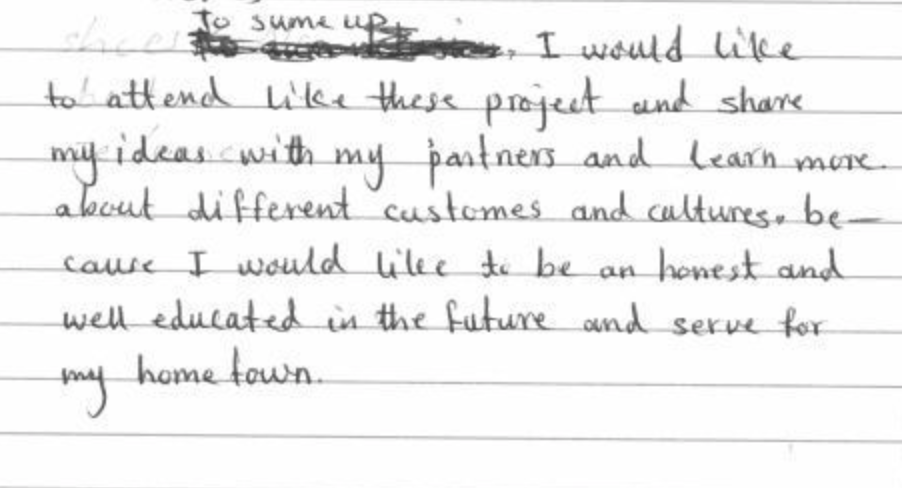 To sume up, I would like
to attend like these project and share
my ideas with my partners and learn more.
about different customes and cultures. be-
cause I would like to be an honest and
well educated in the future and serve for
my home town.